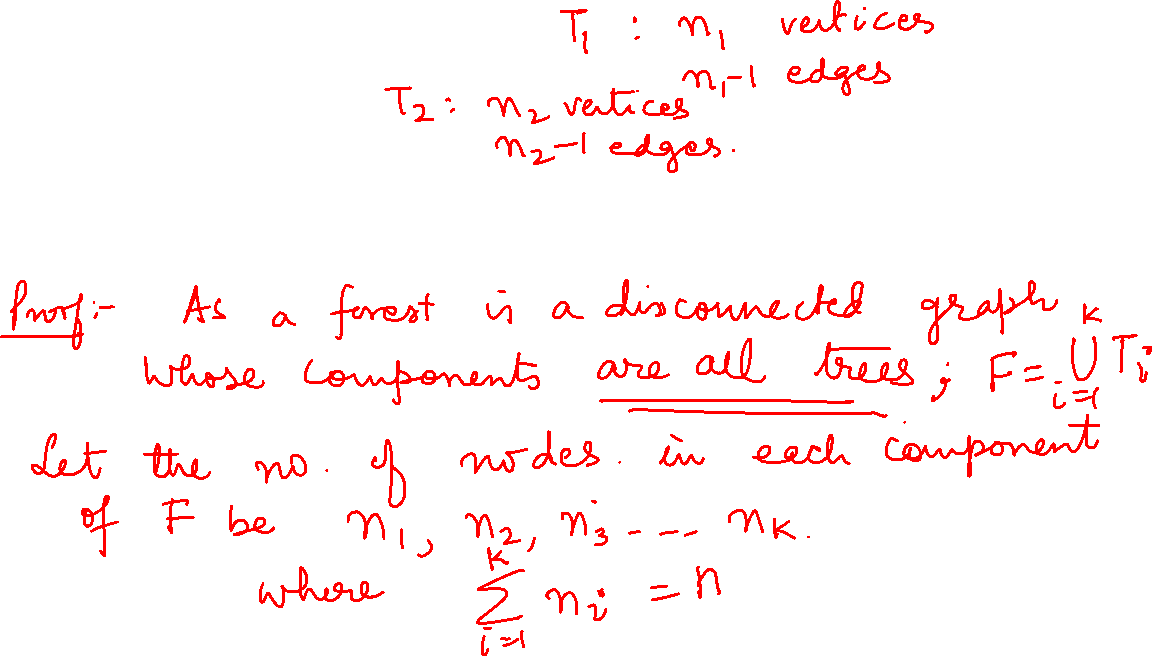 T₁ : n₁ vertices
n₁-1 edges
T₂: n₂ vertices
n₂-1 edges.
Proof:- As a forest is a disconnected graph
whose components are all trees; F = ⋃_{i=1}^{K} Tᵢ
Let the no. of nodes. in each component
of F be n₁, n₂, n₃ ---- nₖ.
where ∑_{i=1}^{K} nᵢ = n